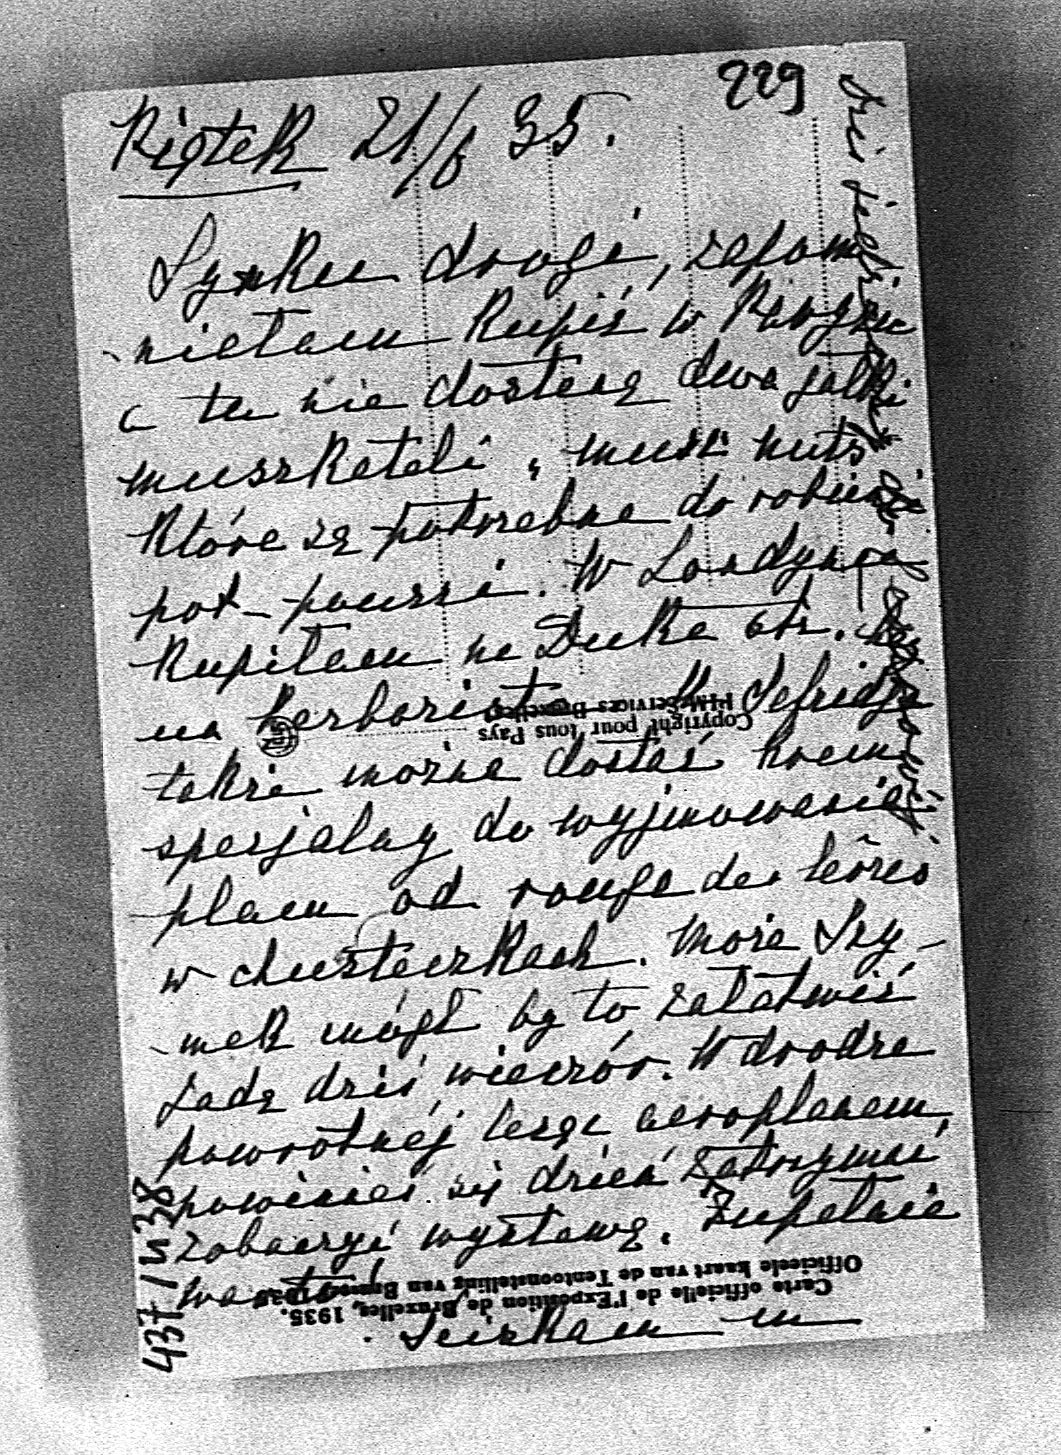 229
Piątek 21/6 35.
Synku drogi, zapom-
niałam kupić w Paryżu
a tu nie dostanę dwa gałki
muszkateli, muszk nuts
które są potrzebne do robienia
pot-pourri. W Londynie
kupiłam na Duke str.
u herborist. W Selfridge
także można dostać krem
specjalny do wyjmowania
plam od rouge des lèvres
w chusteczkach. Może Szy-
mek mógł by to załatwić
Jadę dziś wieczór. W drodze
powrotnej lecąc aeroplanem
powinieś się dzień zatrzymać
zobaczyć wystawę. Zupełnie
warto
Ściskam m
437/n 38
Copyright pour tous Pays
Carte officielle de l'Exposition de Bruxelles, 1935.
Officieele kaart van de Tentoonstelling van Brussel 1935.